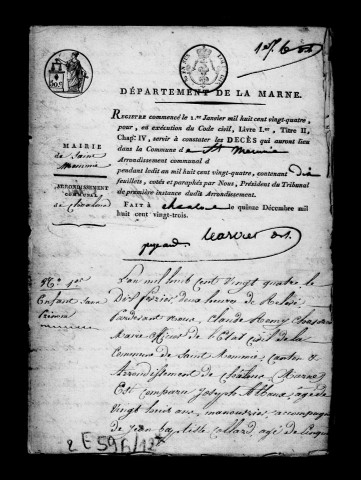 DÉPARTEMENT DE LA MARNE.
REGISTRE commencé le 1.er Janvier mil huit cent vingt-quatre,
pour, en exécution du Code civil, Livre I.er, Titre II,
Chap. IV, servir à constater les DÉCÈS qui auront lieu
dans la Commune d
Arrondissement communal d
pendant ledit an mil huit cent vingt-quatre, contenant dix
feuillets, cotés et paraphés par Nous, Président du Tribunal
de première instance dudit Arrondissement.
FAIT à Chaalons le quinze Décembre mil
huit cent vingt-trois.
MAIRIE
de Saint
Memmie
ARRONDISSEMENT
COMMUNAL
de Chaalons
N.o 1.er
Enfant sans
Prénom
L'an mil huit cent vingt quatre le
Dix février, deux heures de
Pardevant nous, Claude Remy
Maire officier de l'Etat Civil de la
Commune de Saint Memmie, Canton &
Arrondissement de Châlons, Marne
Est comparu Joseph, âgé de
Vingt huit ans, manouvrier accompagné
de Jean Baptiste Collard, âgé de
2 E 596/12